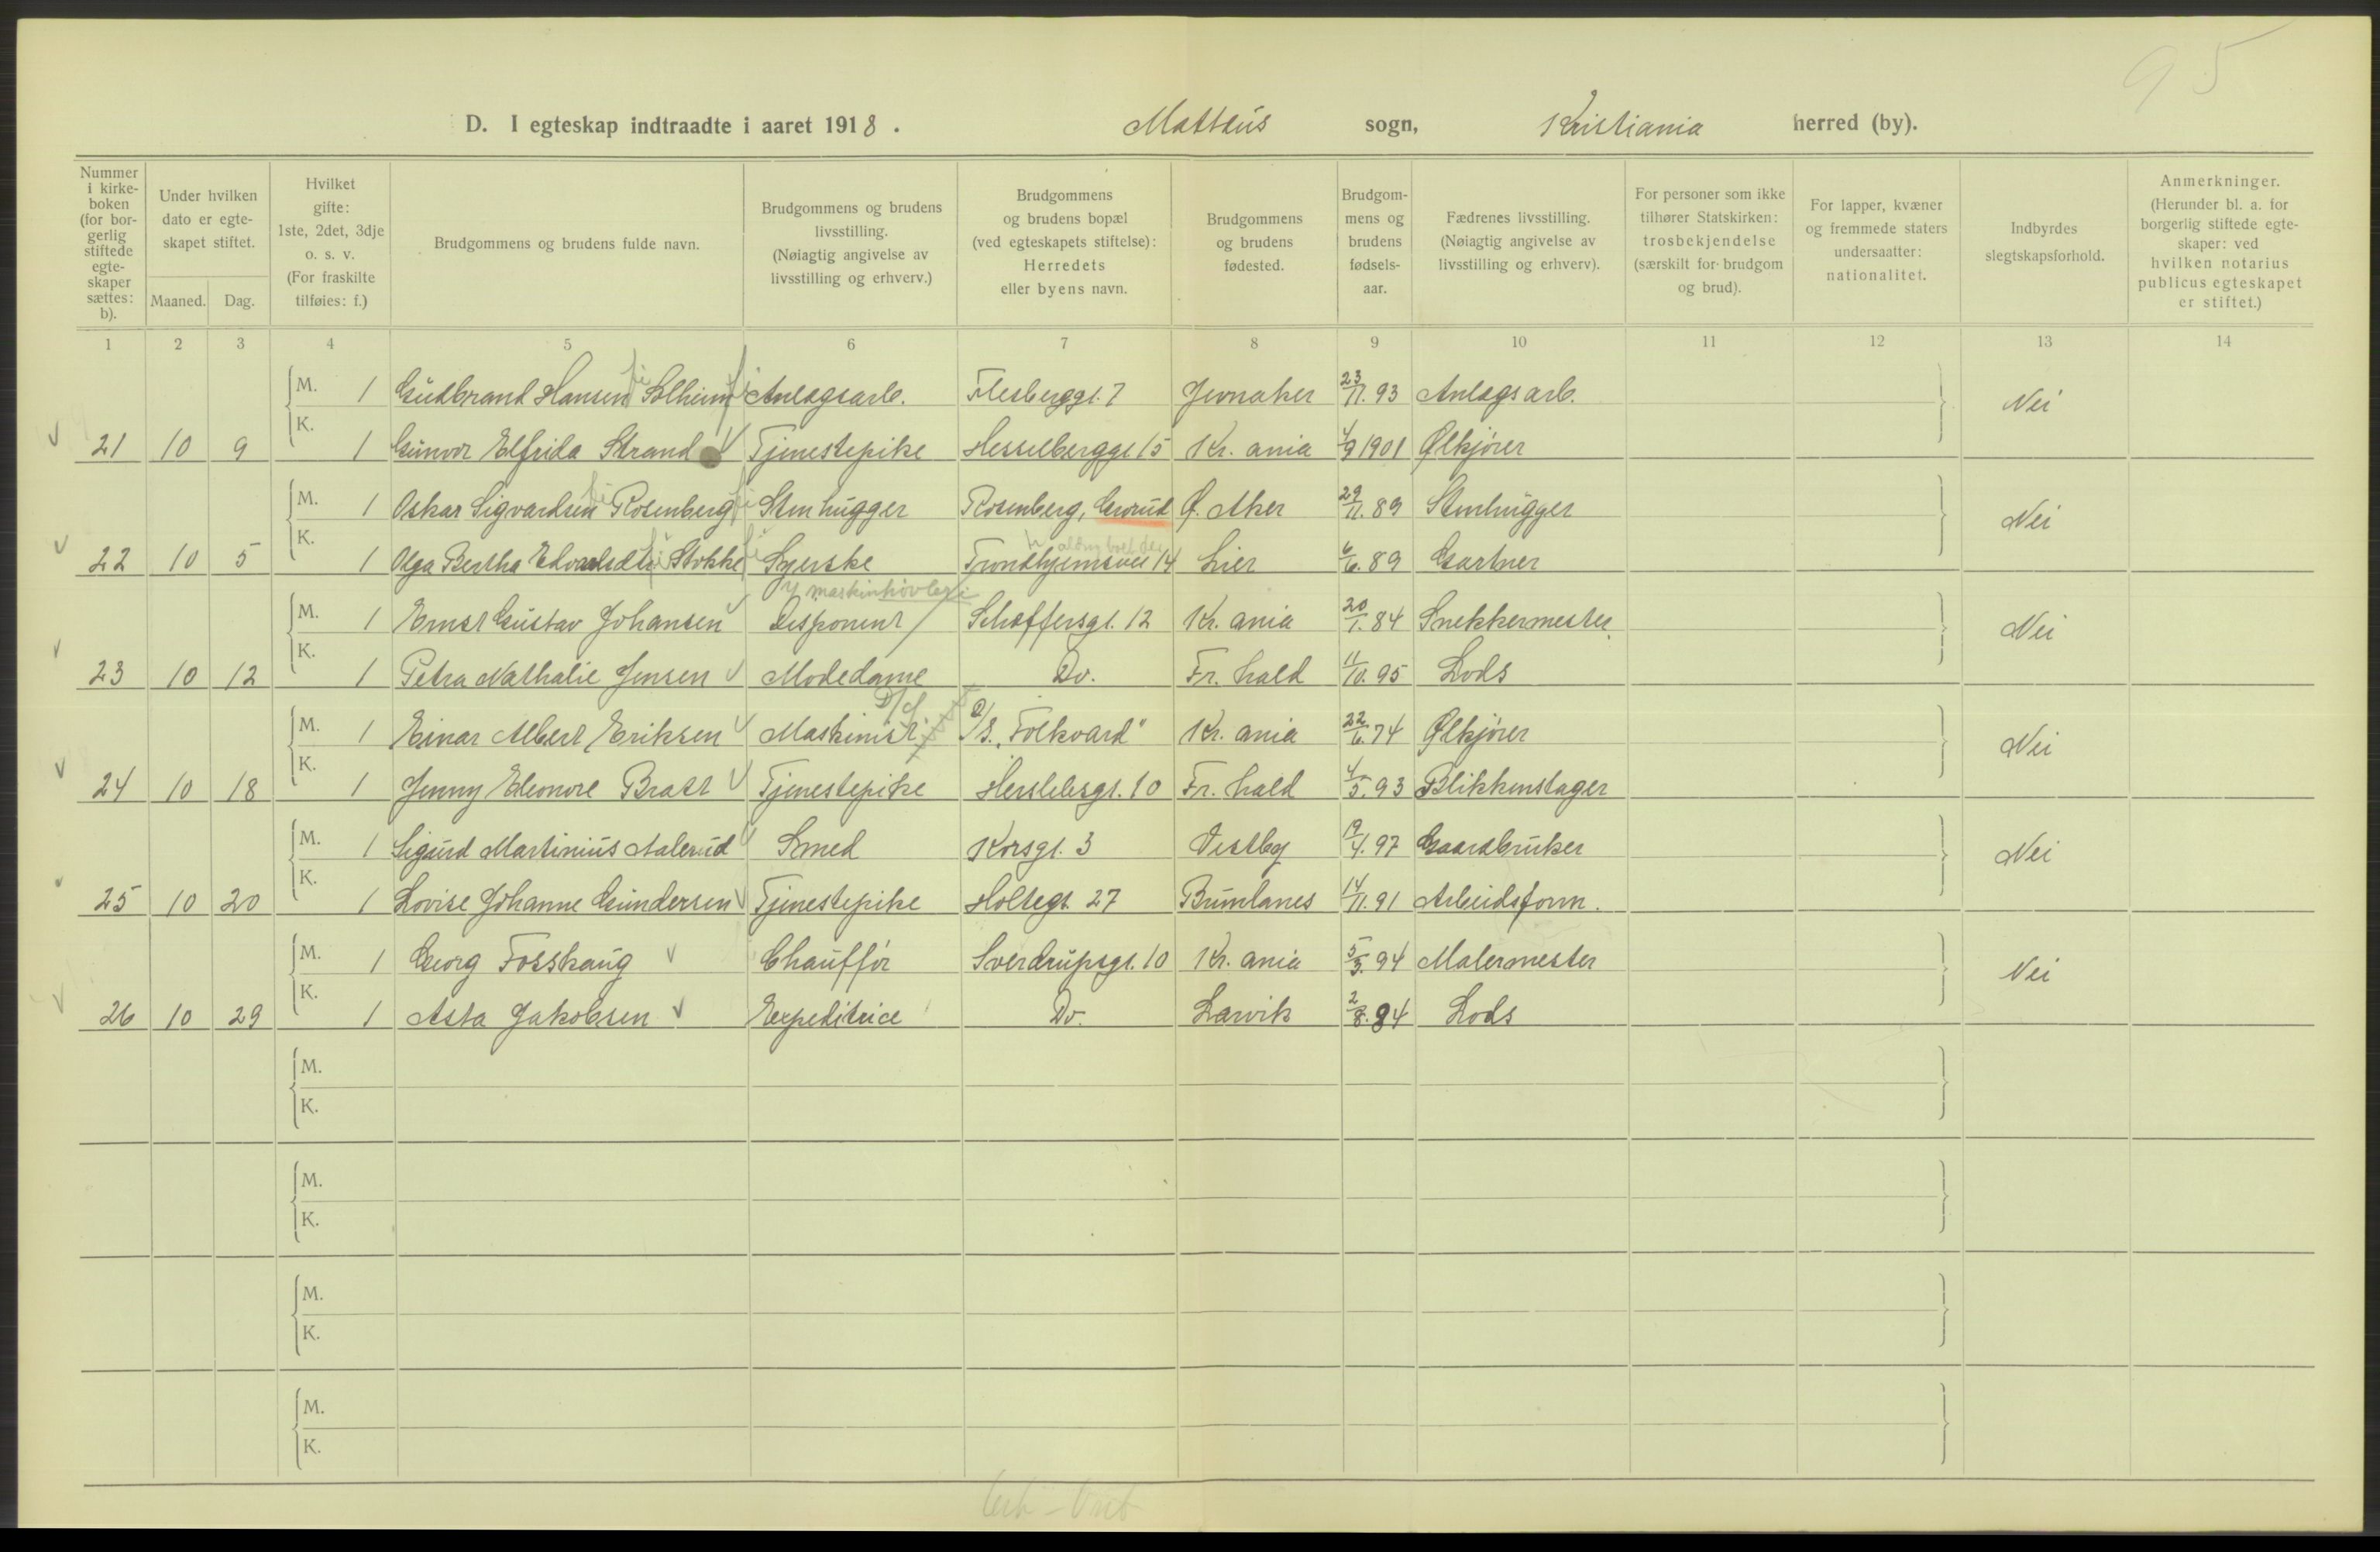 95
D. I egteskap indtraadte i aaret 1918. Mattæus sogn, Kristiania herred (by).
Nummer i kirke-boken (for bor-gerlig stiftede egte-skaper sættes: b).
Under hvilken dato er egte-skapet stiftet.
Maaned. Dag.
Hvilket gifte: 1ste, 2det, 3dje o. s. v. (For fraskilte tilføies: f.)
Brudgommens og brudens fulde navn.
Brudgommens og brudens livsstilling. (Nøiagtig angivelse av livsstilling og erhverv.)
Brudgommens og brudens bopæl (ved egteskapets stiftelse): Herredets eller byens navn.
Brudgommens og brudens fødested.
Brudgom-mens og brudens fødsels-aar.
Fædrenes livsstilling. (Nøiagtig angivelse av livsstilling og erhverv).
For personer som ikke tilhører Statskirken: trosbekjendelse (særskilt for brudgom og brud).
For lapper, kvæner og fremmede staters undersaatter: nationalitet.
Indbyrdes slegtskapsforhold.
Anmerkninger. (Herunder bl. a. for borgerlig stiftede egte-skaper: ved hvilken notarius publicus egteskapet er stiftet.)
1 2 3 4 5 6 7 8 9 10 11 12 13 14
M. 1 Gudbrand Hansen Solheim Anlægsarb. Flesberggt. 7 Jevnaker 23/11. 93 Anlægsarb. Nei
21 10 9 K. 1 Gunvor Elfrida Strand Tjenestepike Hesselberggt 15 Kr. ania 4/9 1901 Ølkjører
M. 1 Oskar Sigvardsen Rosenberg Stenhugger Rosenberg, Grorud Ø. Aker 29/11. 89 Stenhugger Nei
22 10 5 K. 1 Olga Bertha Edvardsdtr Stokke Syerske Trondhjemsvei 14 Lier 6/6. 89 Gartner
maskinhøvleri
M. 1 Ernst Gustav Johansen Disponent Schæffersgt. 12 Kr. ania 20/1. 84 Snekkermester Nei
23 10 12 K. 1 Petra Nathalie Jensen Modedame Do. Fr. hald 11/10. 95 Lods
M. 1 Einar Albert Eriksen Maskinist D/S. „Folkvard" Kr. ania 22/6. 74 Ølkjører Nei
24 10 18 K. 1 Jenny Eleonore Bratt Tjenestepike Herslebsgt. 10 Fr. hald 4/5. 93 Blikkenslager
M. 1 Sigurd Martinius Aalerud Smed Korsgt. 3 Vestby 19/4. 97 Gaardbruker Nei
25 10 20 K. 1 Lovise Johanne Gundersen Tjenestepike Holtegt. 27 Brunlanes 14/11. 91 Arbeidsform.
M. 1 Georg Fosshaug Chauffør Sverdrupsgt. 10 Kr. ania 5/5. 94 Malermester Nei
26 10 29 K. 1 Asta Jakobsen Expeditrice Do. Larvik 2/8. 94 Lods
M.
K.
M.
K.
M.
K.
M.
K.